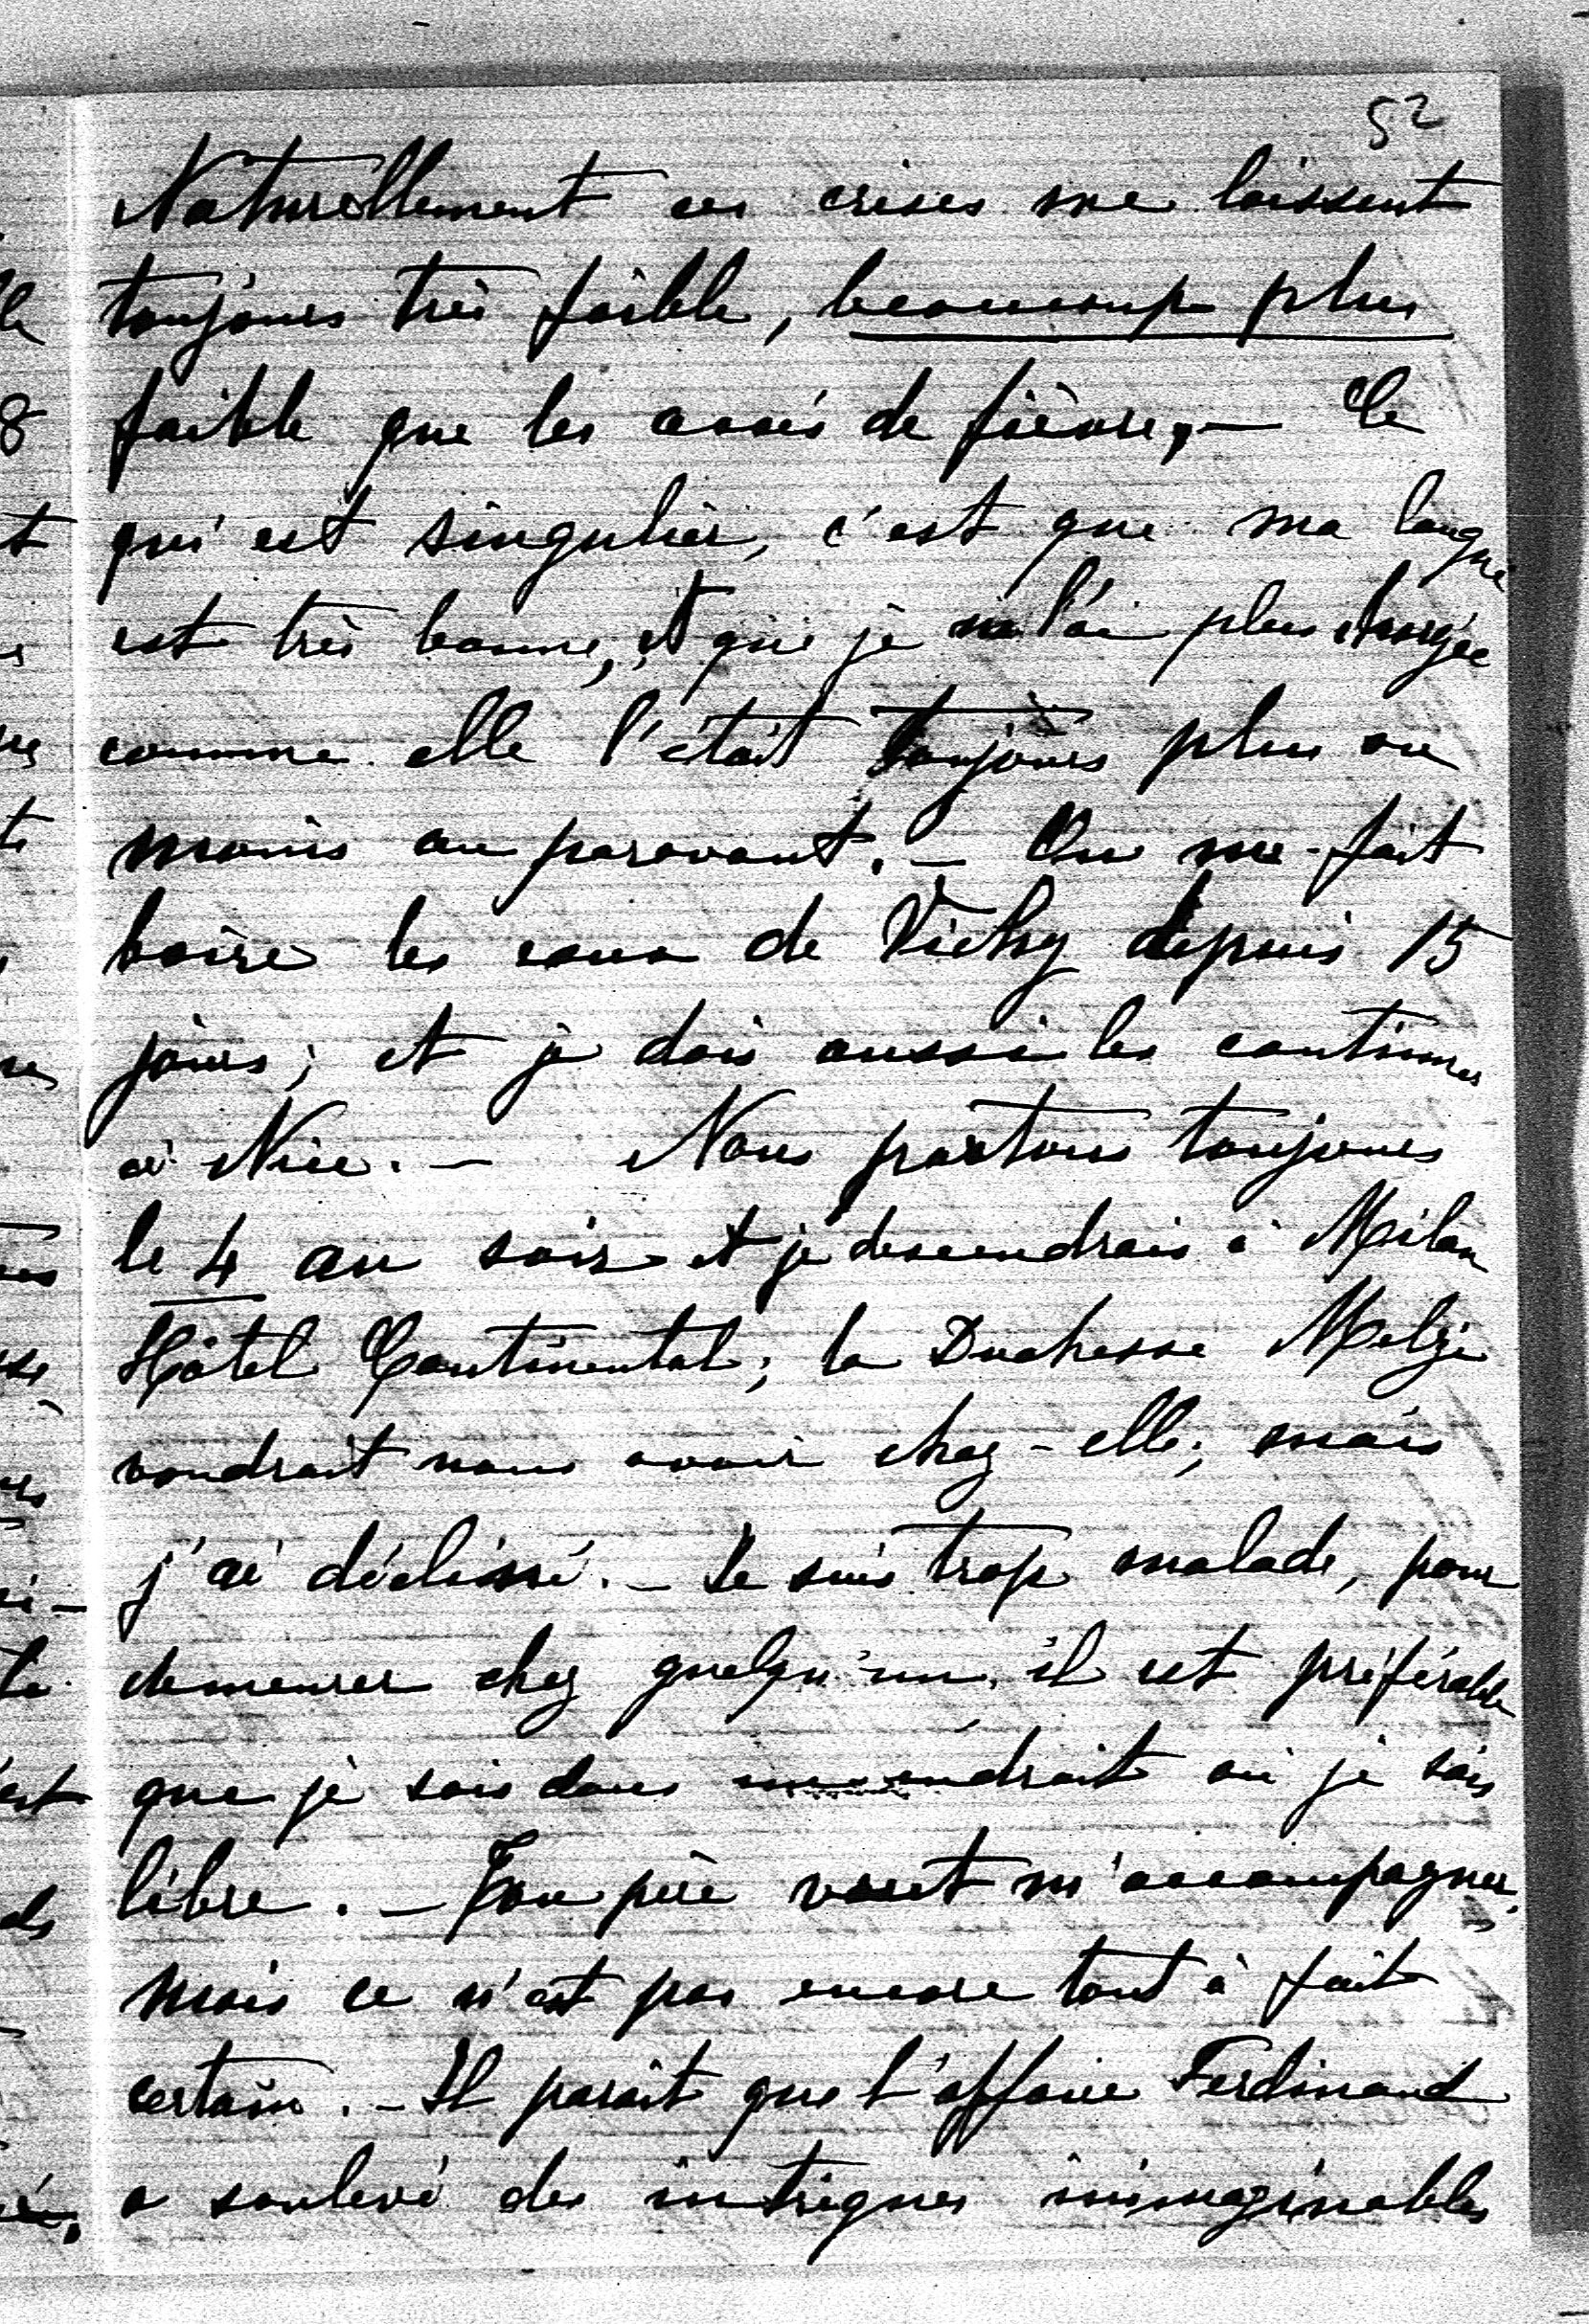 52
Naturellement ces crises me laissent
toujours très faible, beaucoup plus
faible que les accès de fièvre, — Ce
qui est singulier, c'est que ma langue
est très bonne, et que je ne l'ai plus chargée
comme elle l'était toujours plus ou
moins au paravant. — On me fait
boire les eaux de Vichy depuis 15
jours; et je dois aussi les continuer
à Nice. — Nous partons toujours
le 4 au soir et je descendrais à Milan
Hôtel Continental; la Duchesse Melzi
voudrait nous avoir chez-elle; mais
j'ai décliné. — Je suis trop malade, pour
demeurer chez quelqu'un, il est préférable
que je sois dans endroit où je sois
libre. — Ton père veut m'accompagner,
mais ce n'est pas encore tout à fait
certain. — Il parait que l'affaire Ferdinand
a soulevé des intrigues inimaginables